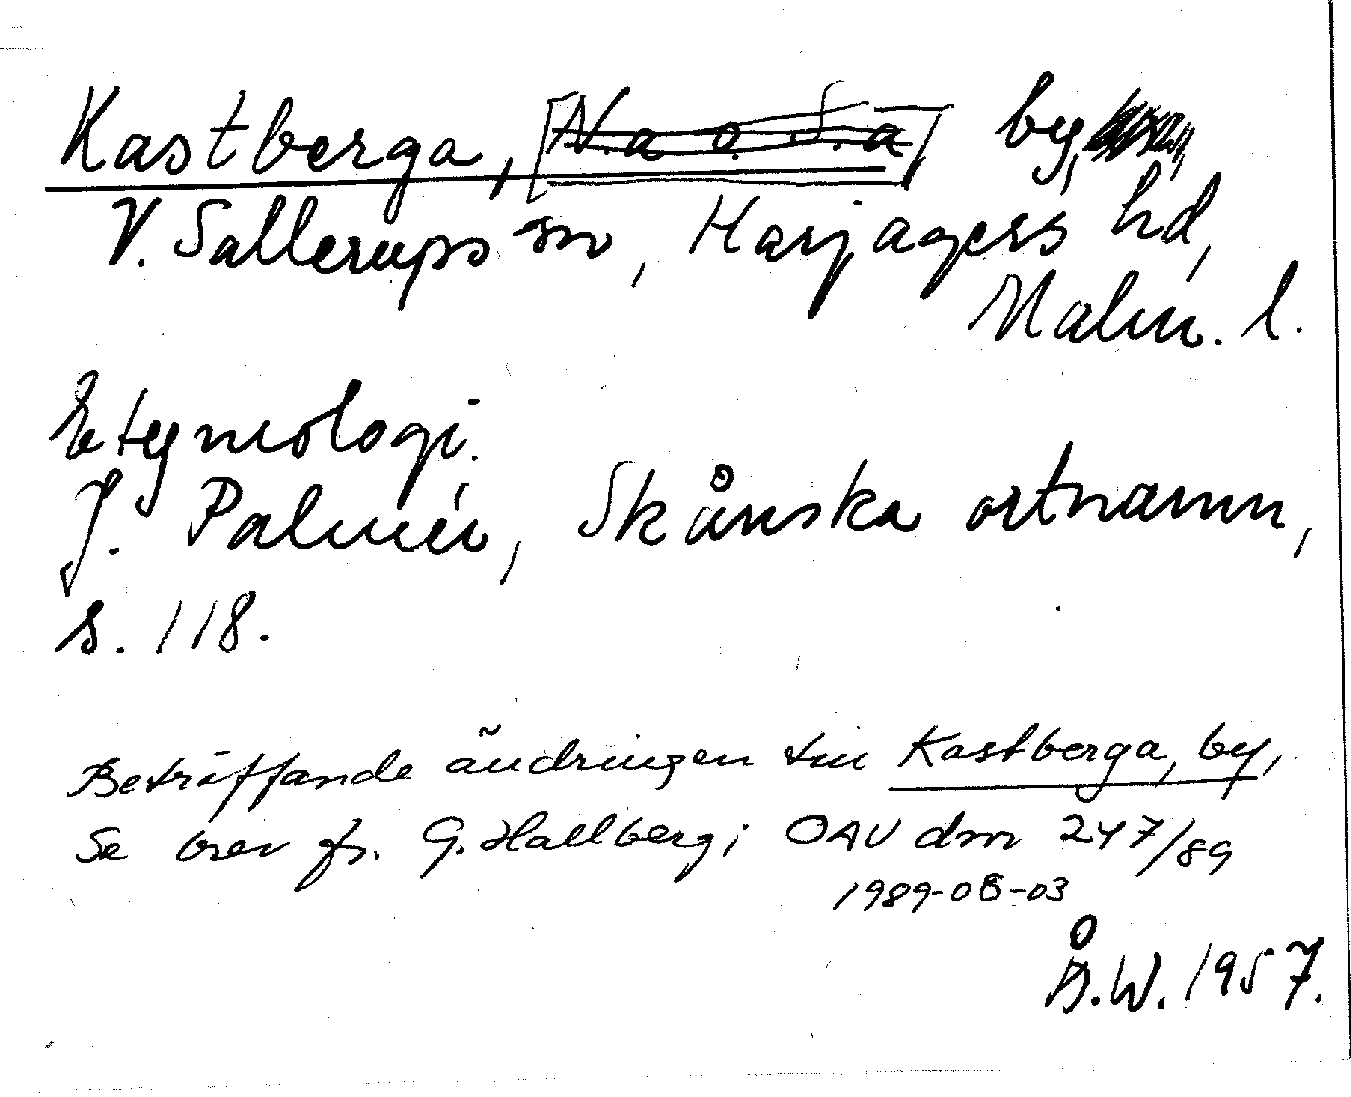 Kastberga, [N.a o. S.a] by,
V. Sallerups sn, Harjagers hd,
Malm. l.
Etymologi.
J. Palmér, Skånska ortnamn,
s. 118.
Beträffande ändringen till Kastberga, by,
se brev fr. G. Hallberg; OAU dnr 247/89
1989-08-03
Å.W. 1957.